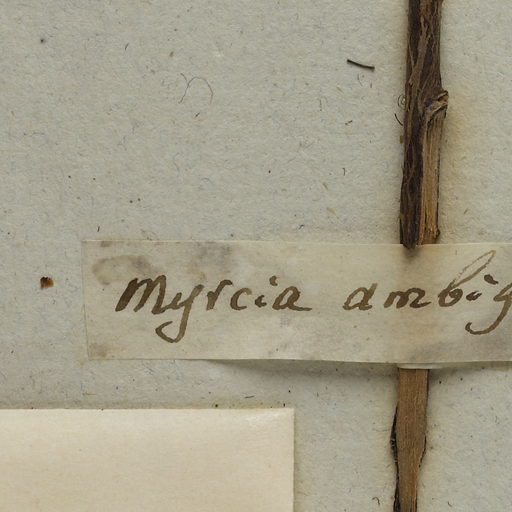 Myrcia ambig